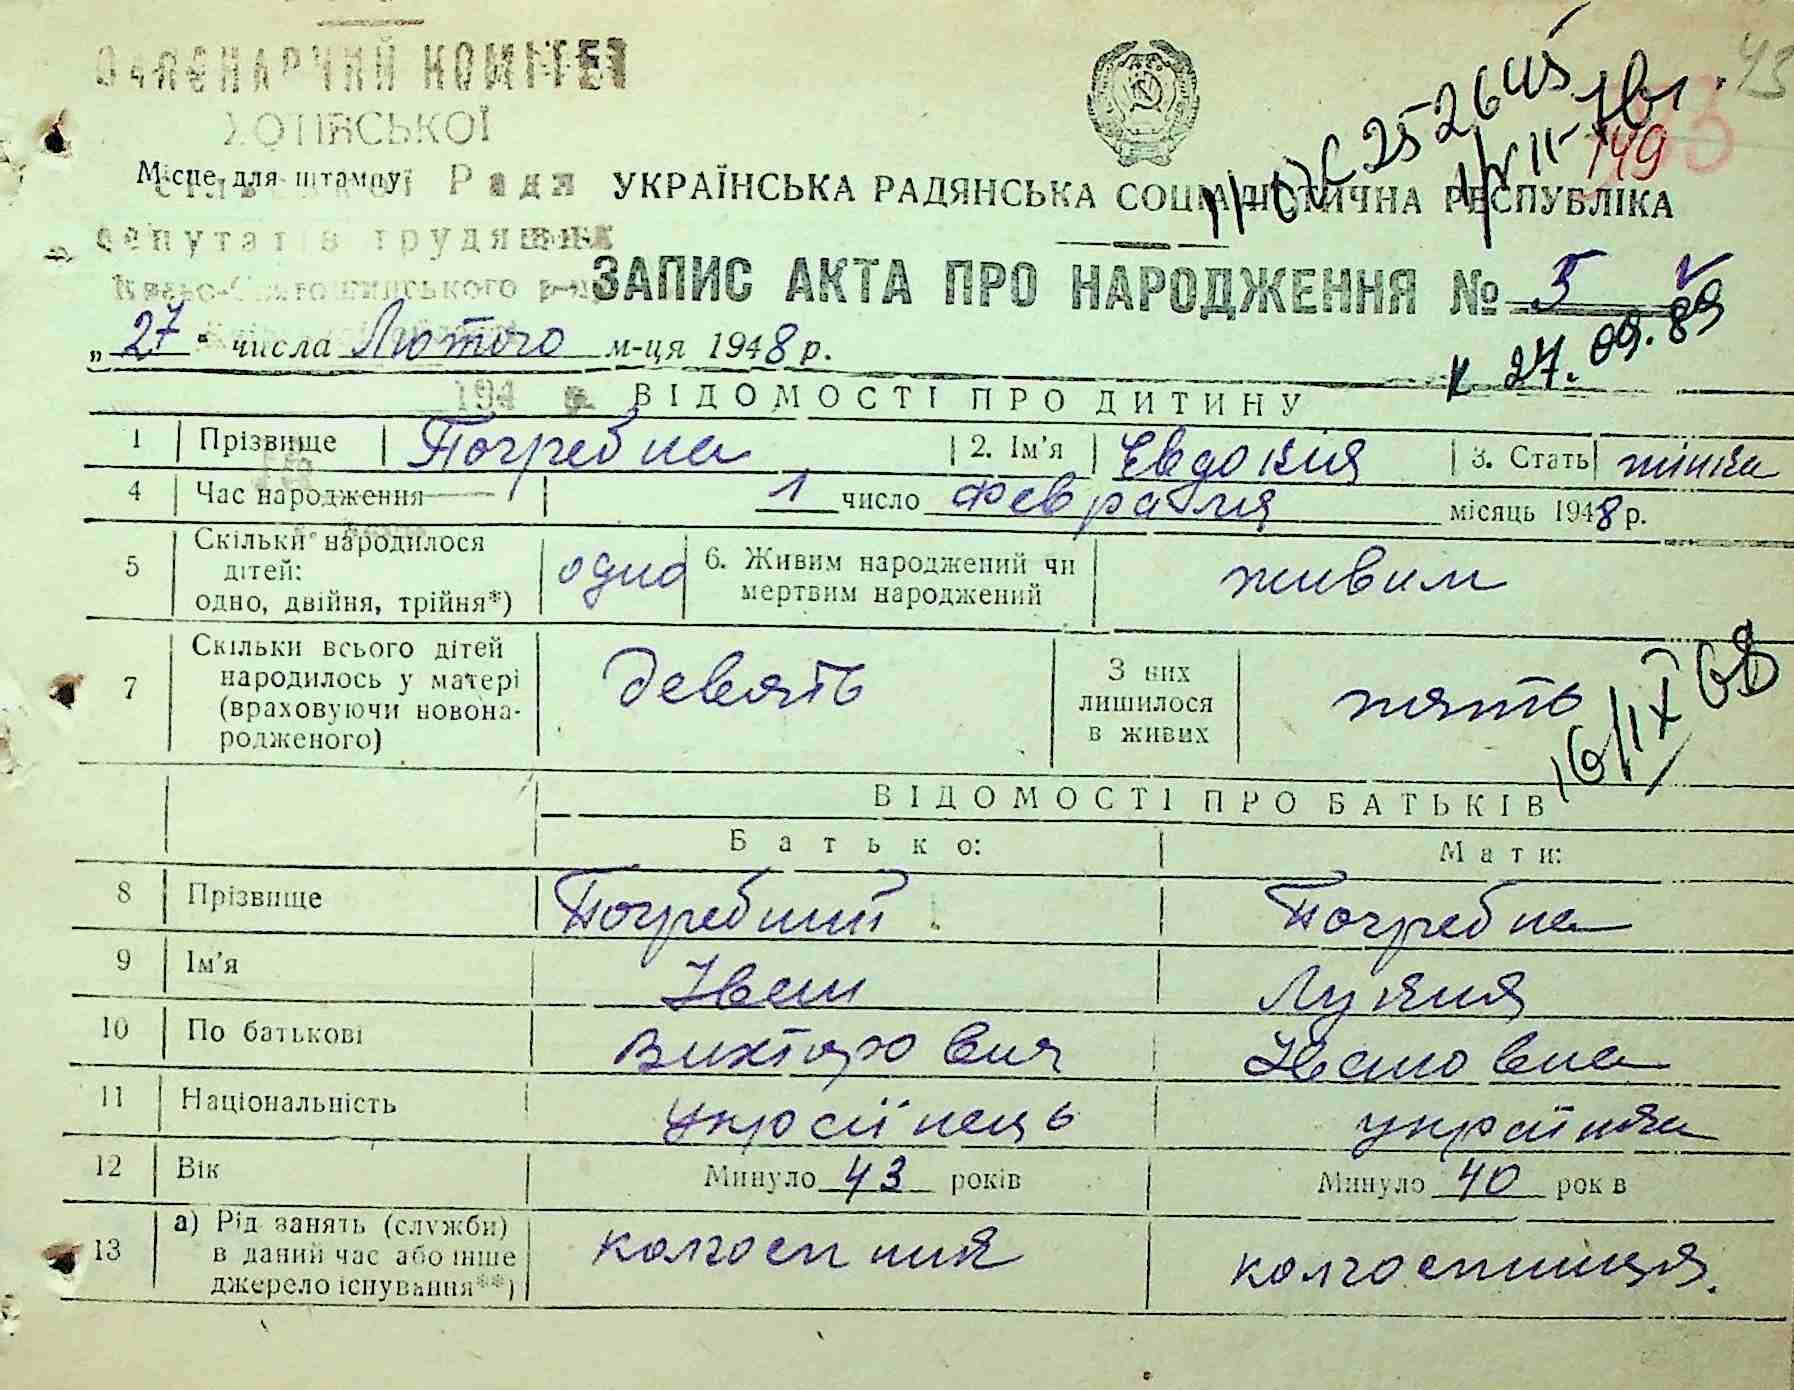 ВИКОНАВЧИЙ КОМІТЕТ
ХОТІВСЬКОЇ
43
Місце для штампу
Ради
149
УКРАЇНСЬКА РАДЯНСЬКА СОЦІАЛІСТИЧНА РЕСПУБЛІКА
депутатів трудящих
Києво-Святошинського р-ну
ЗАПИС АКТА ПРО НАРОДЖЕННЯ № 5
„27“ числа Лютого м-ця 1948 р.
27.09.89
194 р.
ВІДОМОСТІ ПРО ДИТИНУ
1 Прізвище Погребна 2. Ім’я Евдокия 3. Стать жінка
4 Час народження 1 число февраля місяць 1948 р.
5 Скільки народилося
дітей:
одно, двійня, трійня*) одно 6. Живим народжений чи
мертвим народжений живим
7 Скільки всього дітей
народилось у матері
(враховуючи новона-
родженого) девять З них
лишилося
в живих пять
16/IX 68
ВІДОМОСТІ ПРО БАТЬКІВ
Батько: Мати:
8 Прізвище Погребний Погребна
9 Ім’я Иван Лукия
10 По батькові Викторович Ивановна
11 Національність українець українка
12 Вік Минуло 43 років Минуло 40 років
13 а) Рід занять (служби)
в даний час або інше
джерело існування**) колгоспник колгоспниця.